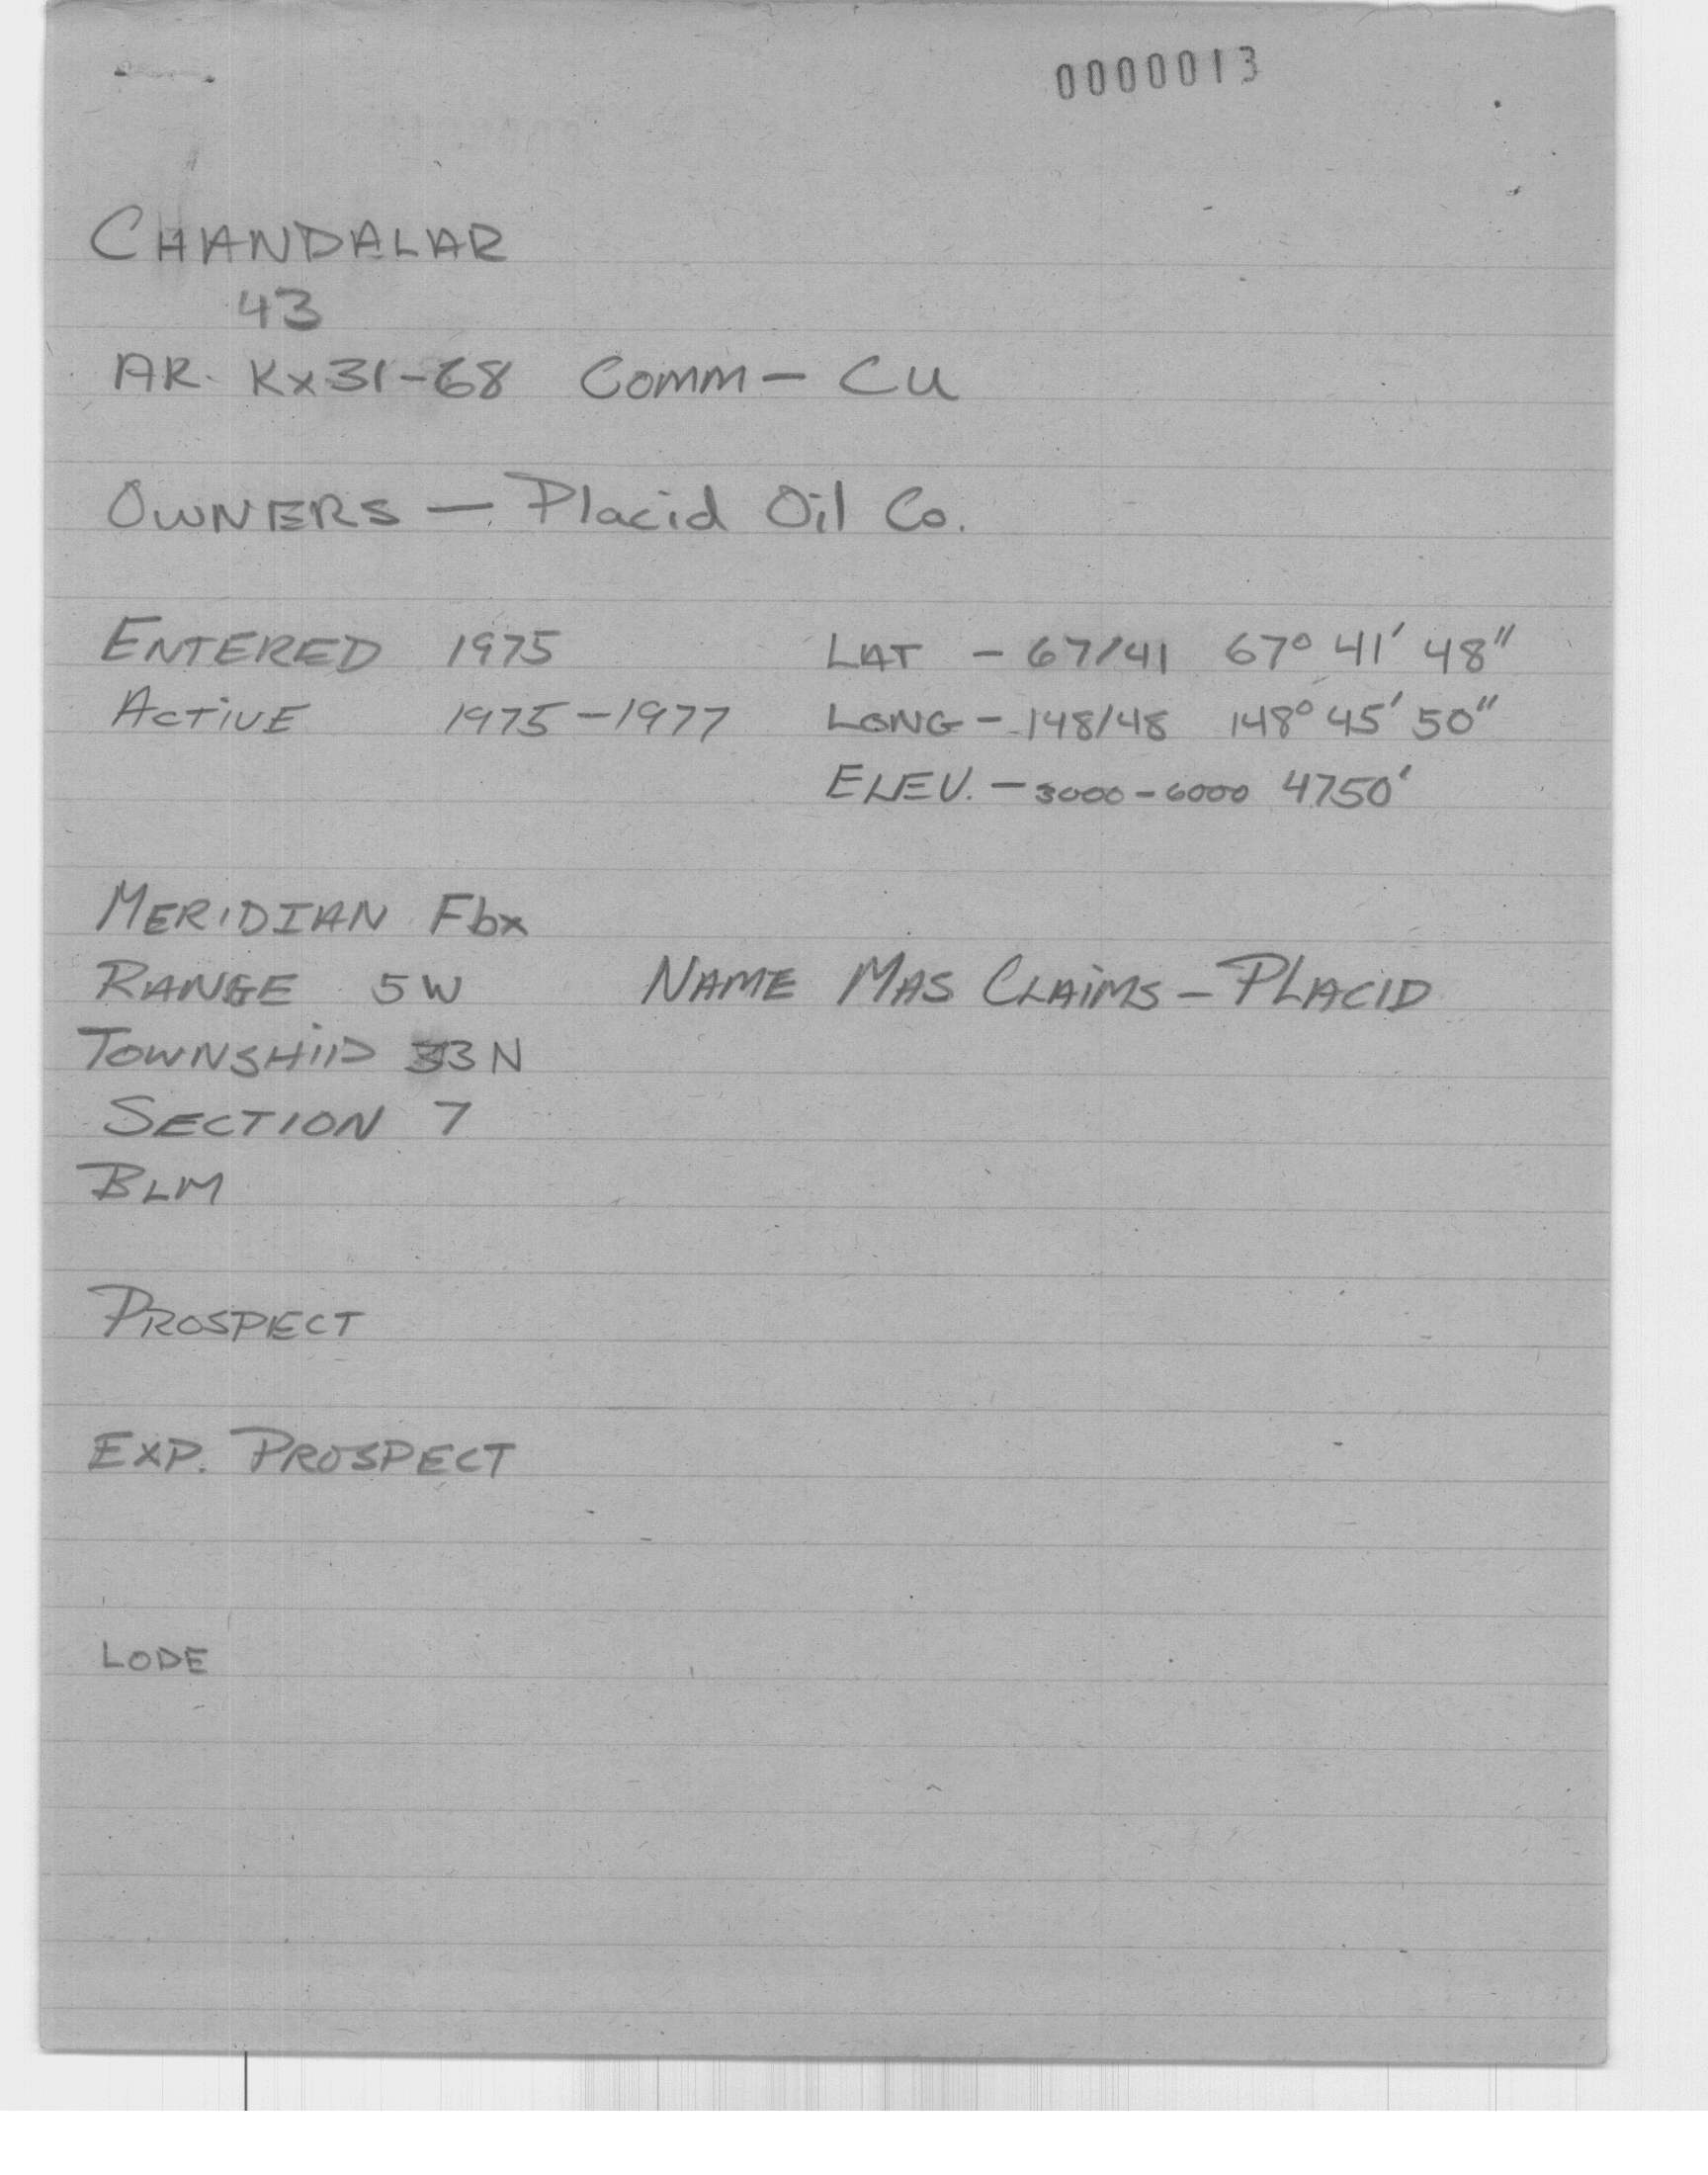 0000013
CHANDALAR
43
AR. Kx31-68 Comm - Cu
OWNERS - Placid Oil Co.
ENTERED 1975 LAT - 67/41 67° 41' 48"
ACTIVE 1975-1977 LONG - 148/48 148° 45' 50"
ELEV. - 3000-6000 4750'
MERIDIAN Fbx
RANGE 5W NAME MAS CLAIMS - PLACID
TOWNSHIP 33N
SECTION 7
BLM
PROSPECT
EXP. PROSPECT
LODE